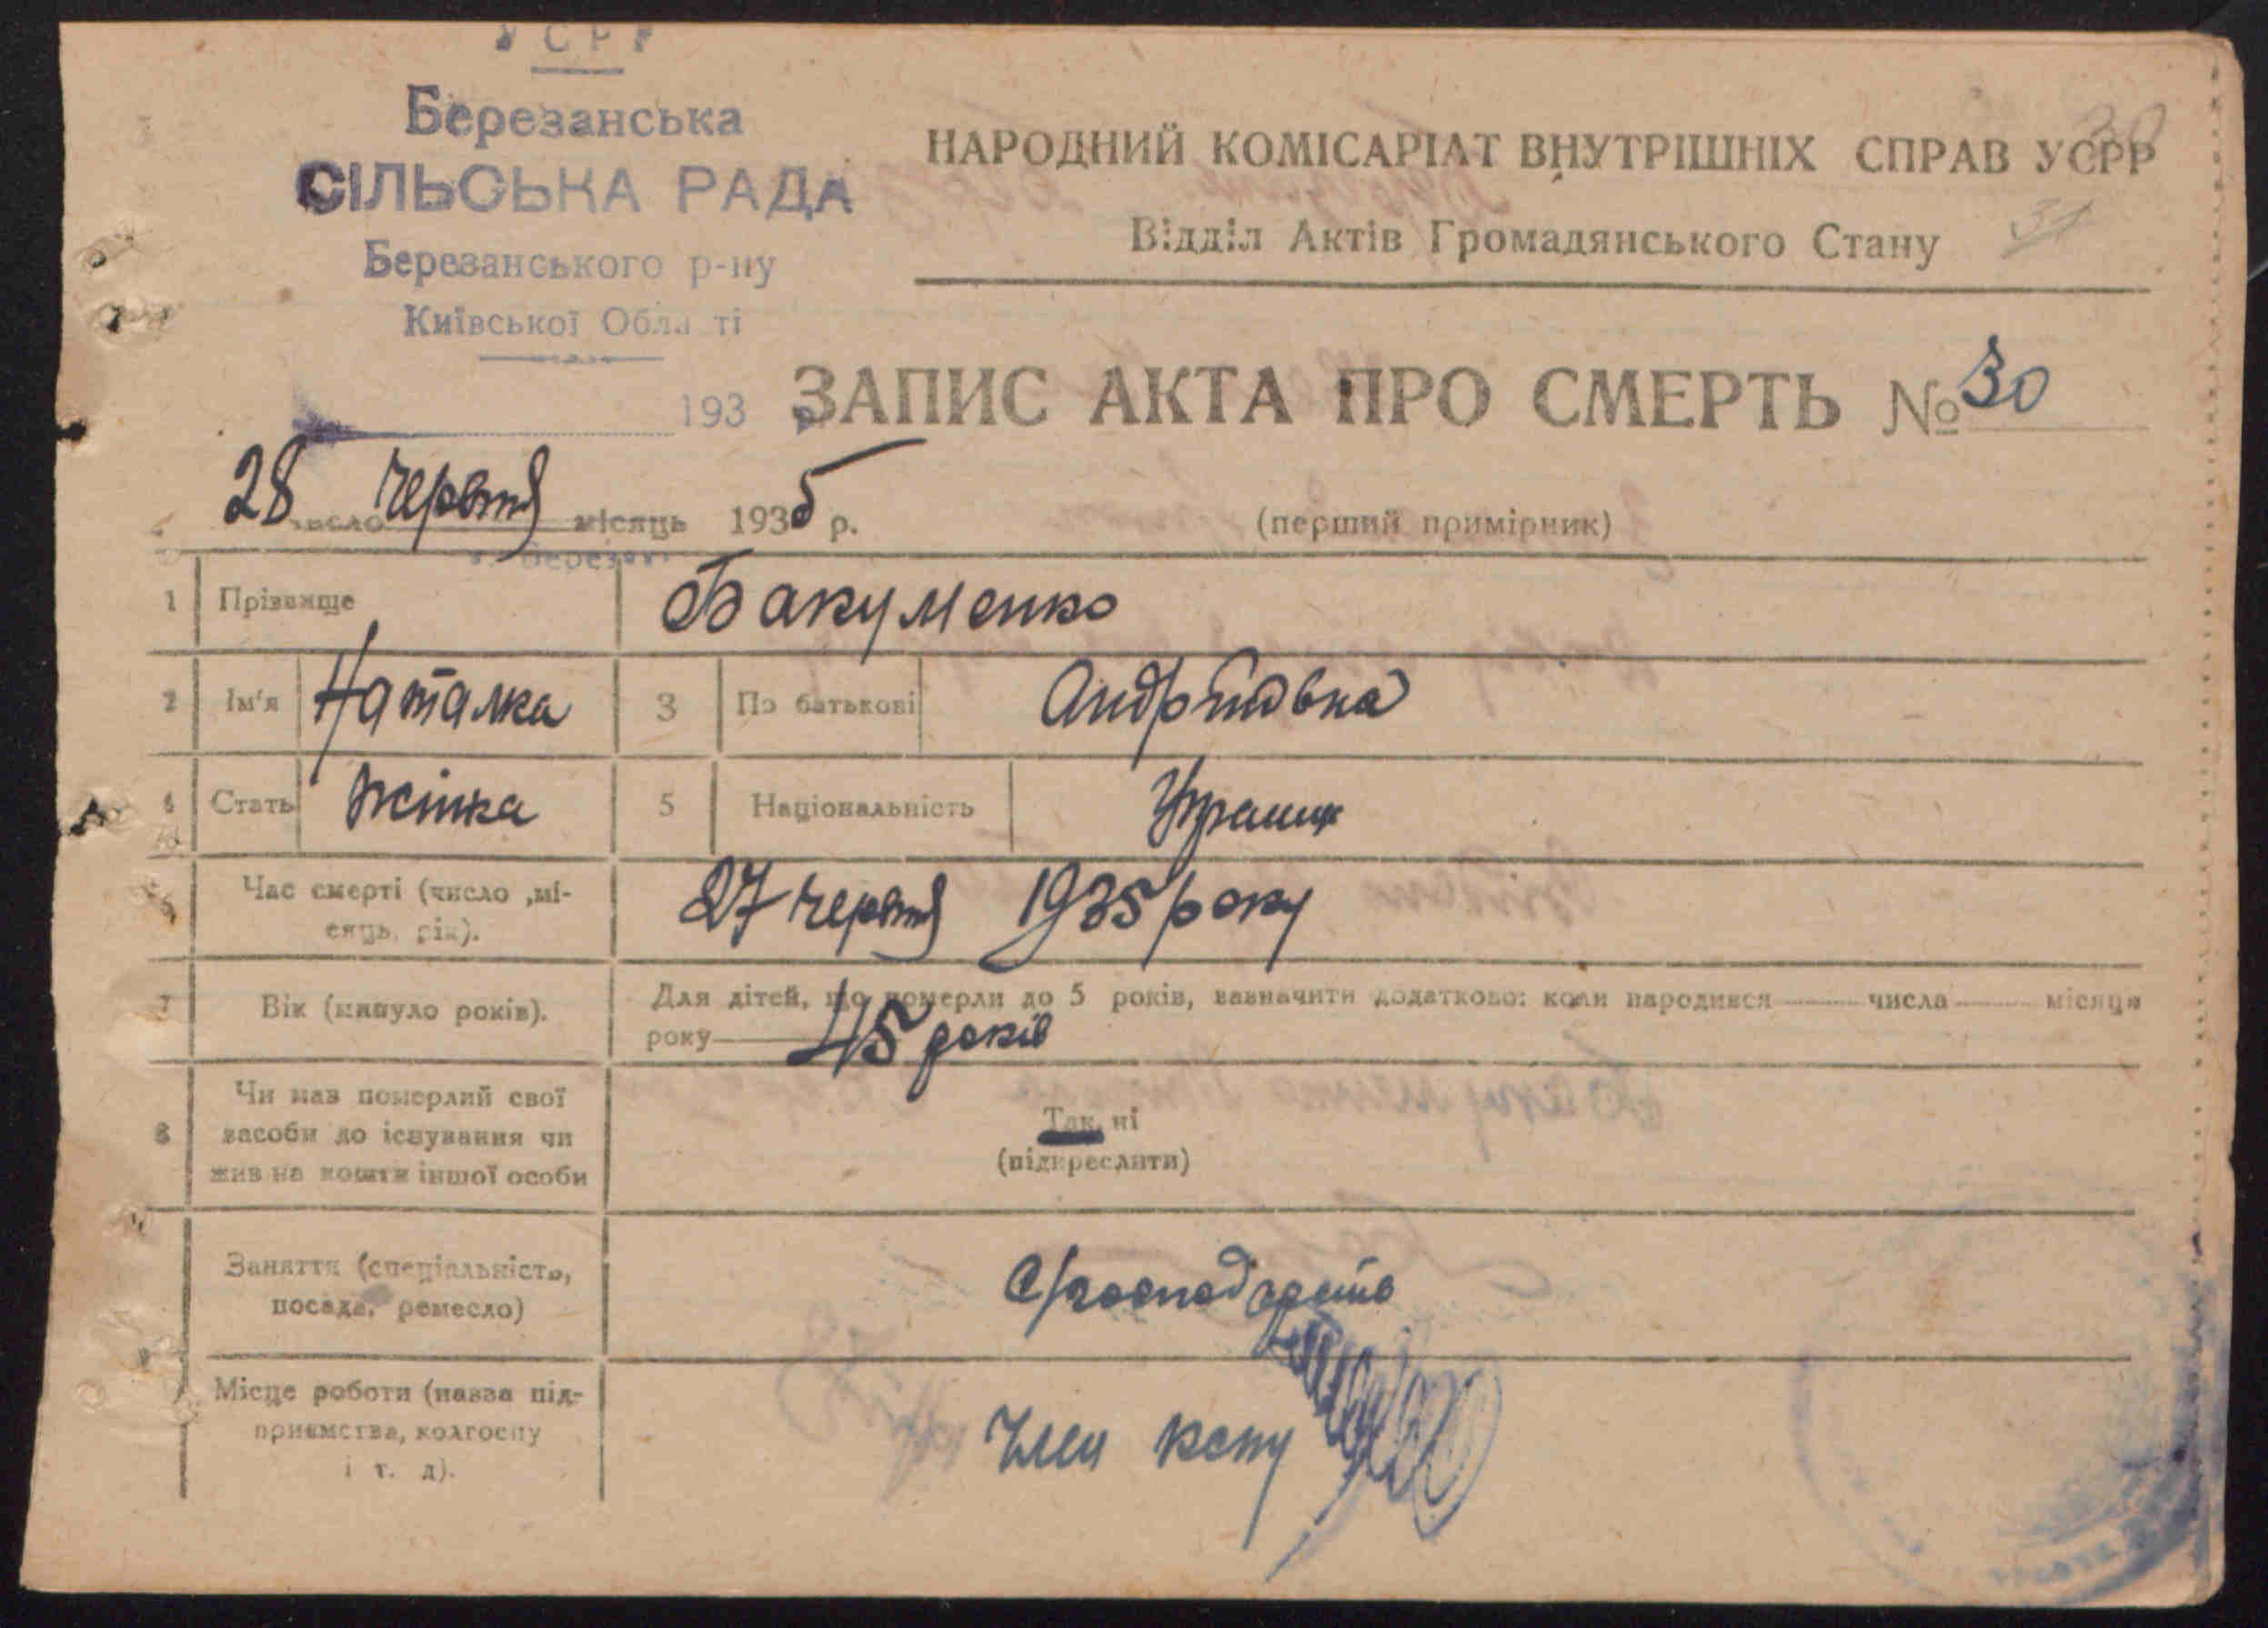 УСРР
Березанська
СІЛЬСЬКА РАДА
Березанського р-ну
Київської Обла ті
193 р
30
НАРОДНИЙ КОМІСАРІАТ ВНУТРІШНІХ СПРАВ УСРР
Відділ Актів Громадянського Стану
31
ЗАПИС АКТА ПРО СМЕРТЬ № 30
28 число червня місяць 1935 р.
(перший примірник)
1 Прізвище Бакуменко
2 Ім'я Наталка 3 По батькові Андріївна
4 Стать жінка 5 Національність Україн
6 Час смерті (число ,мі-
сяць, рік).
27 червня 1935 року
7 Вік (минуло років).
Для дітей, що померли до 5 років, зазначити додатково: коли народився числа місяця
року 45 років
8 Чи мав померлий свої
засоби до існування чи
жив на кошти іншої особи
Так, ні
(підкреслити)
Заняття (спеціальність,
посада, ремесло)
С/господарство
Місце роботи (назва під-
приємства, колгоспу
і т. д).
Член